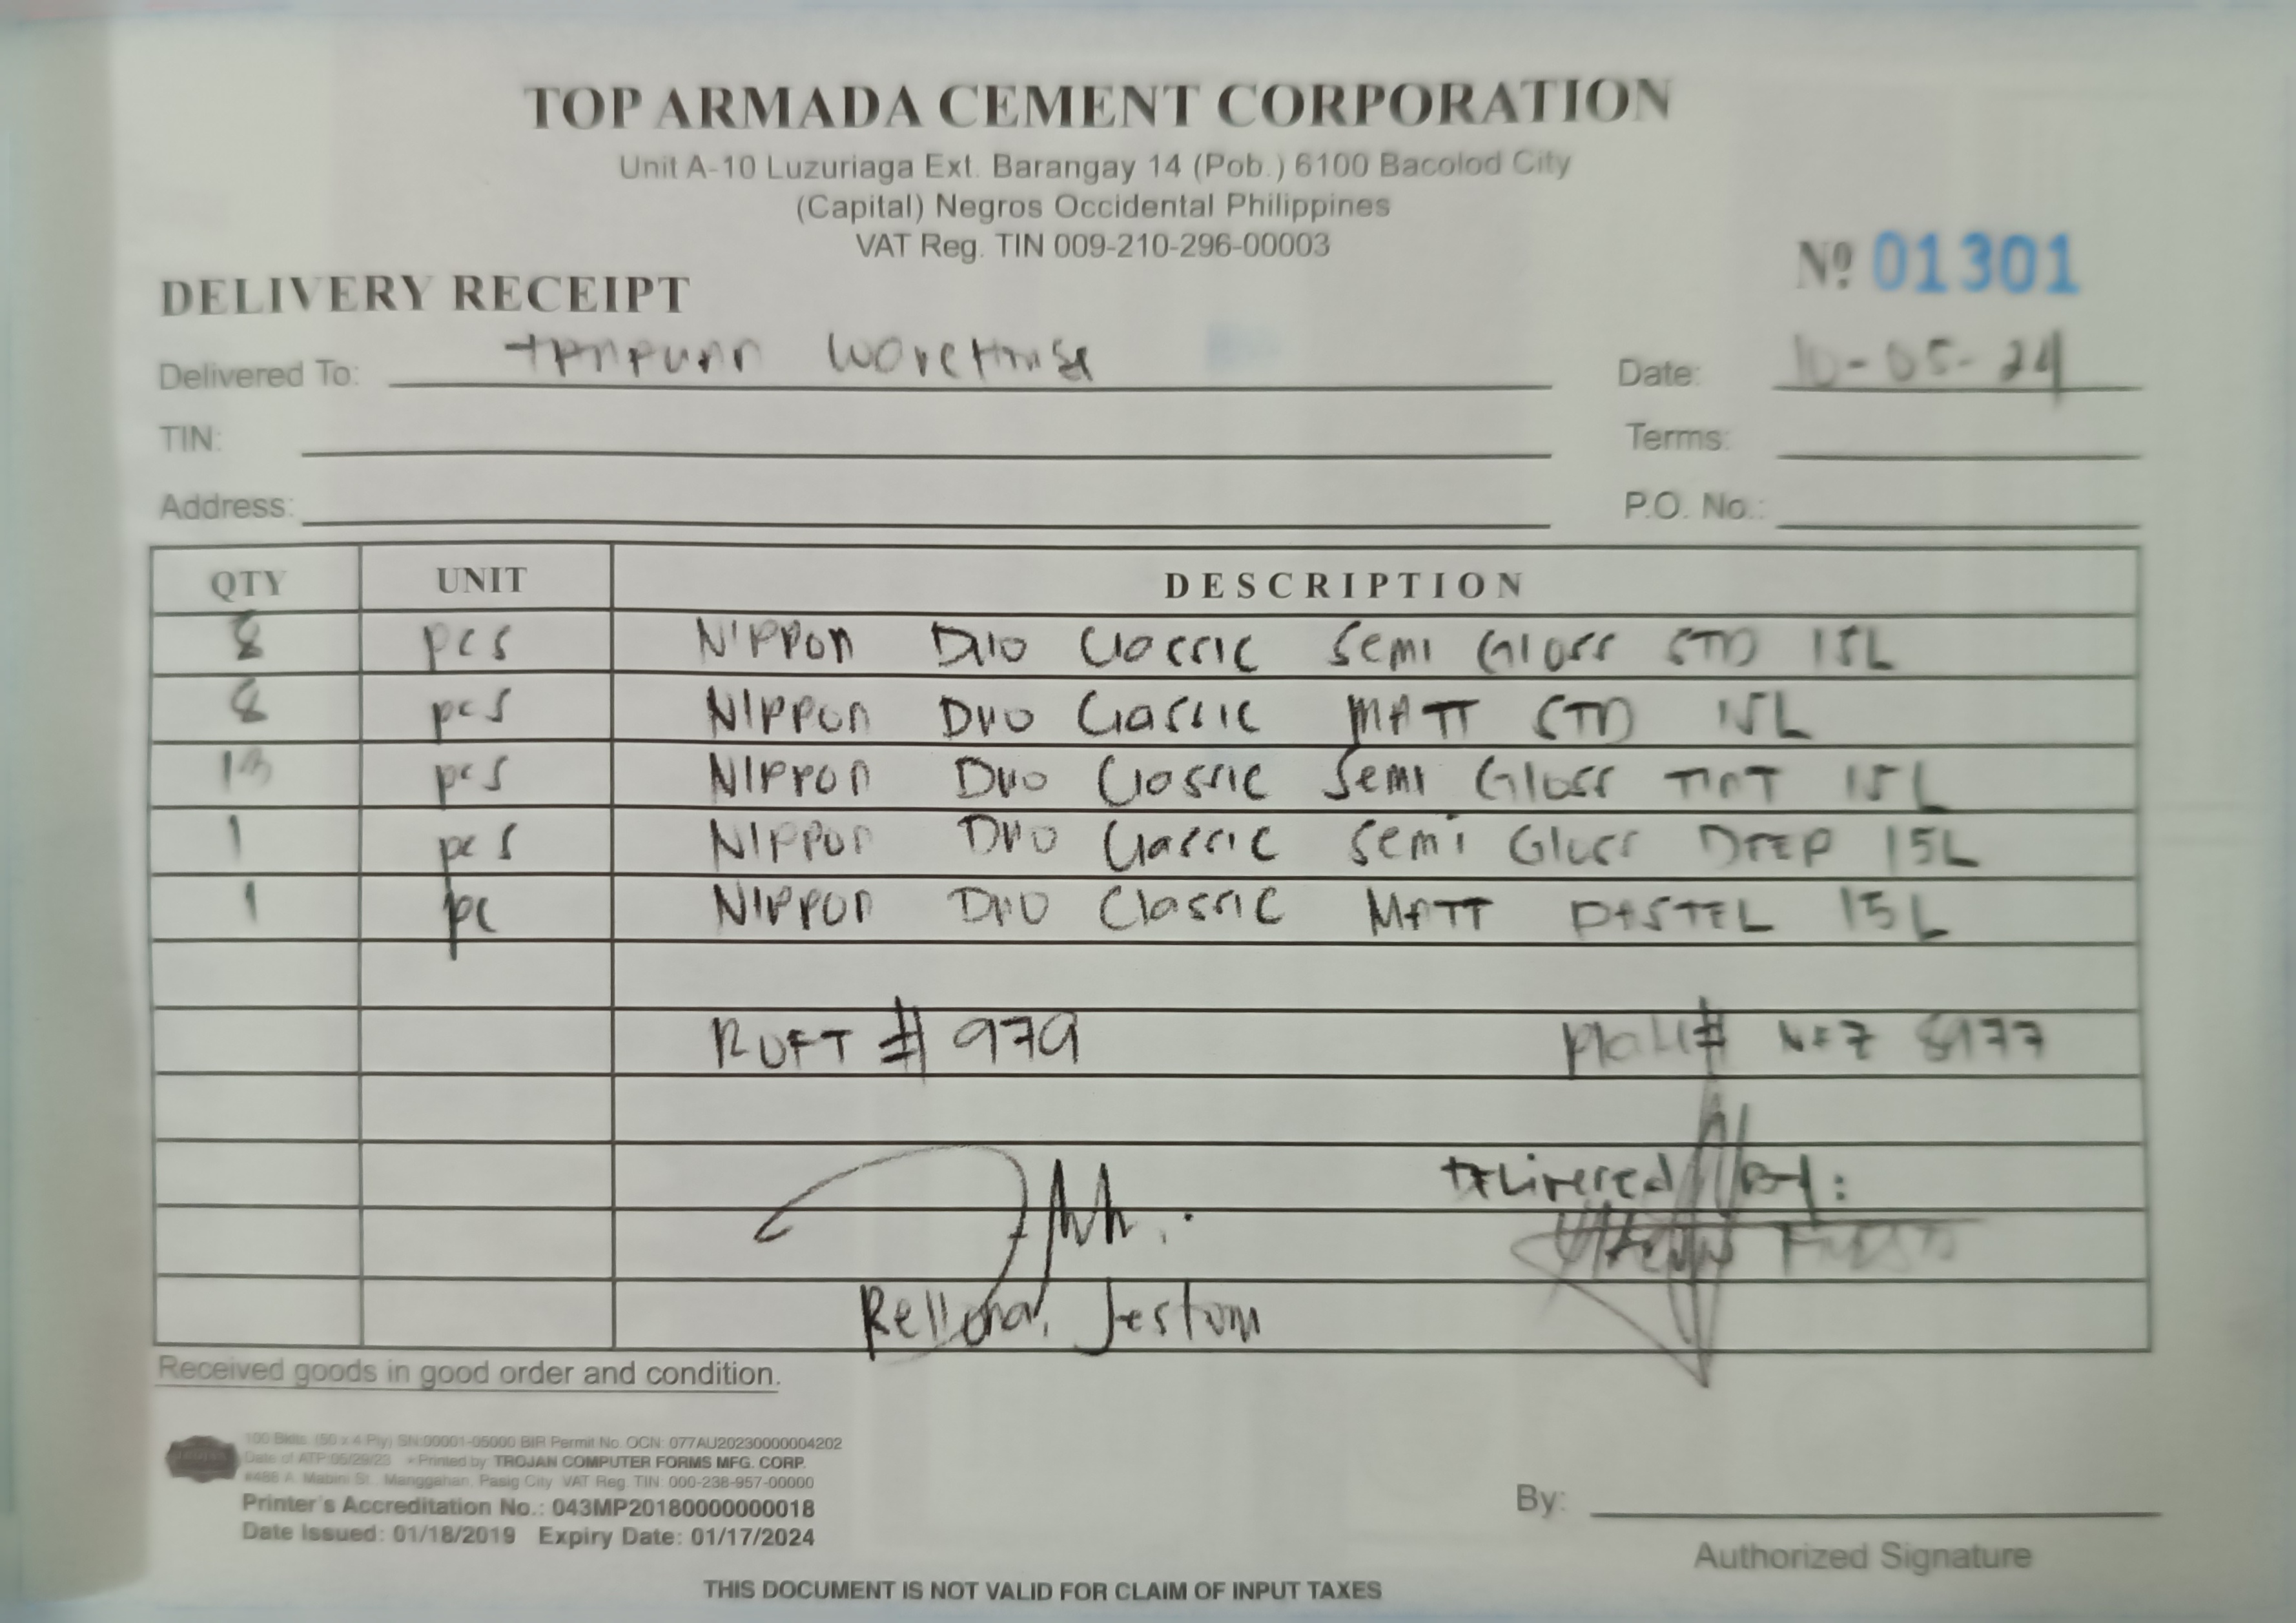 TOP ARMADA CEMENT CORPORATION
Unit A-10 Luzuriaga Ext. Barangay 14 (Pob.) 6100 Bacolod City
(Capital) Negros Occidental Philippines
VAT Reg. TIN 009-210-296-00003
Nº 01301
DELIVERY RECEIPT
Delivered To: Warehouse
Date: 10-05-24
TIN:
Terms:
Address:
P.O. No.:
QTY UNIT DESCRIPTION
8 pcs NIPPON DUO Classic Semi Gloss STD 15L
8 pcs NIPPON DUO Classic MATT STD 15L
pcs NIPPON DUO Classic Semi Gloss TINT 15L
1 pcs NIPPON DUO Classic Semi Gloss DEEP 15L
1 pc NIPPON DUO Classic MATT PASTEL 15L
# 979 8977
Delivered By:
Jestom
Received goods in good order and condition.
100 Bklts. (50 x 4 Ply) SN:00001-05000 BIR Permit No. OCN: 077AU20230000004202
Date of ATP:05/29/23 • Printed by TROJAN COMPUTER FORMS MFG. CORP.
#488 A. Mabini St., Manggahan, Pasig City VAT Reg. TIN: 000-238-957-00000
Printer's Accreditation No.: 043MP20180000000018
Date Issued: 01/18/2019 Expiry Date: 01/17/2024
By:
Authorized Signature
THIS DOCUMENT IS NOT VALID FOR CLAIM OF INPUT TAXES